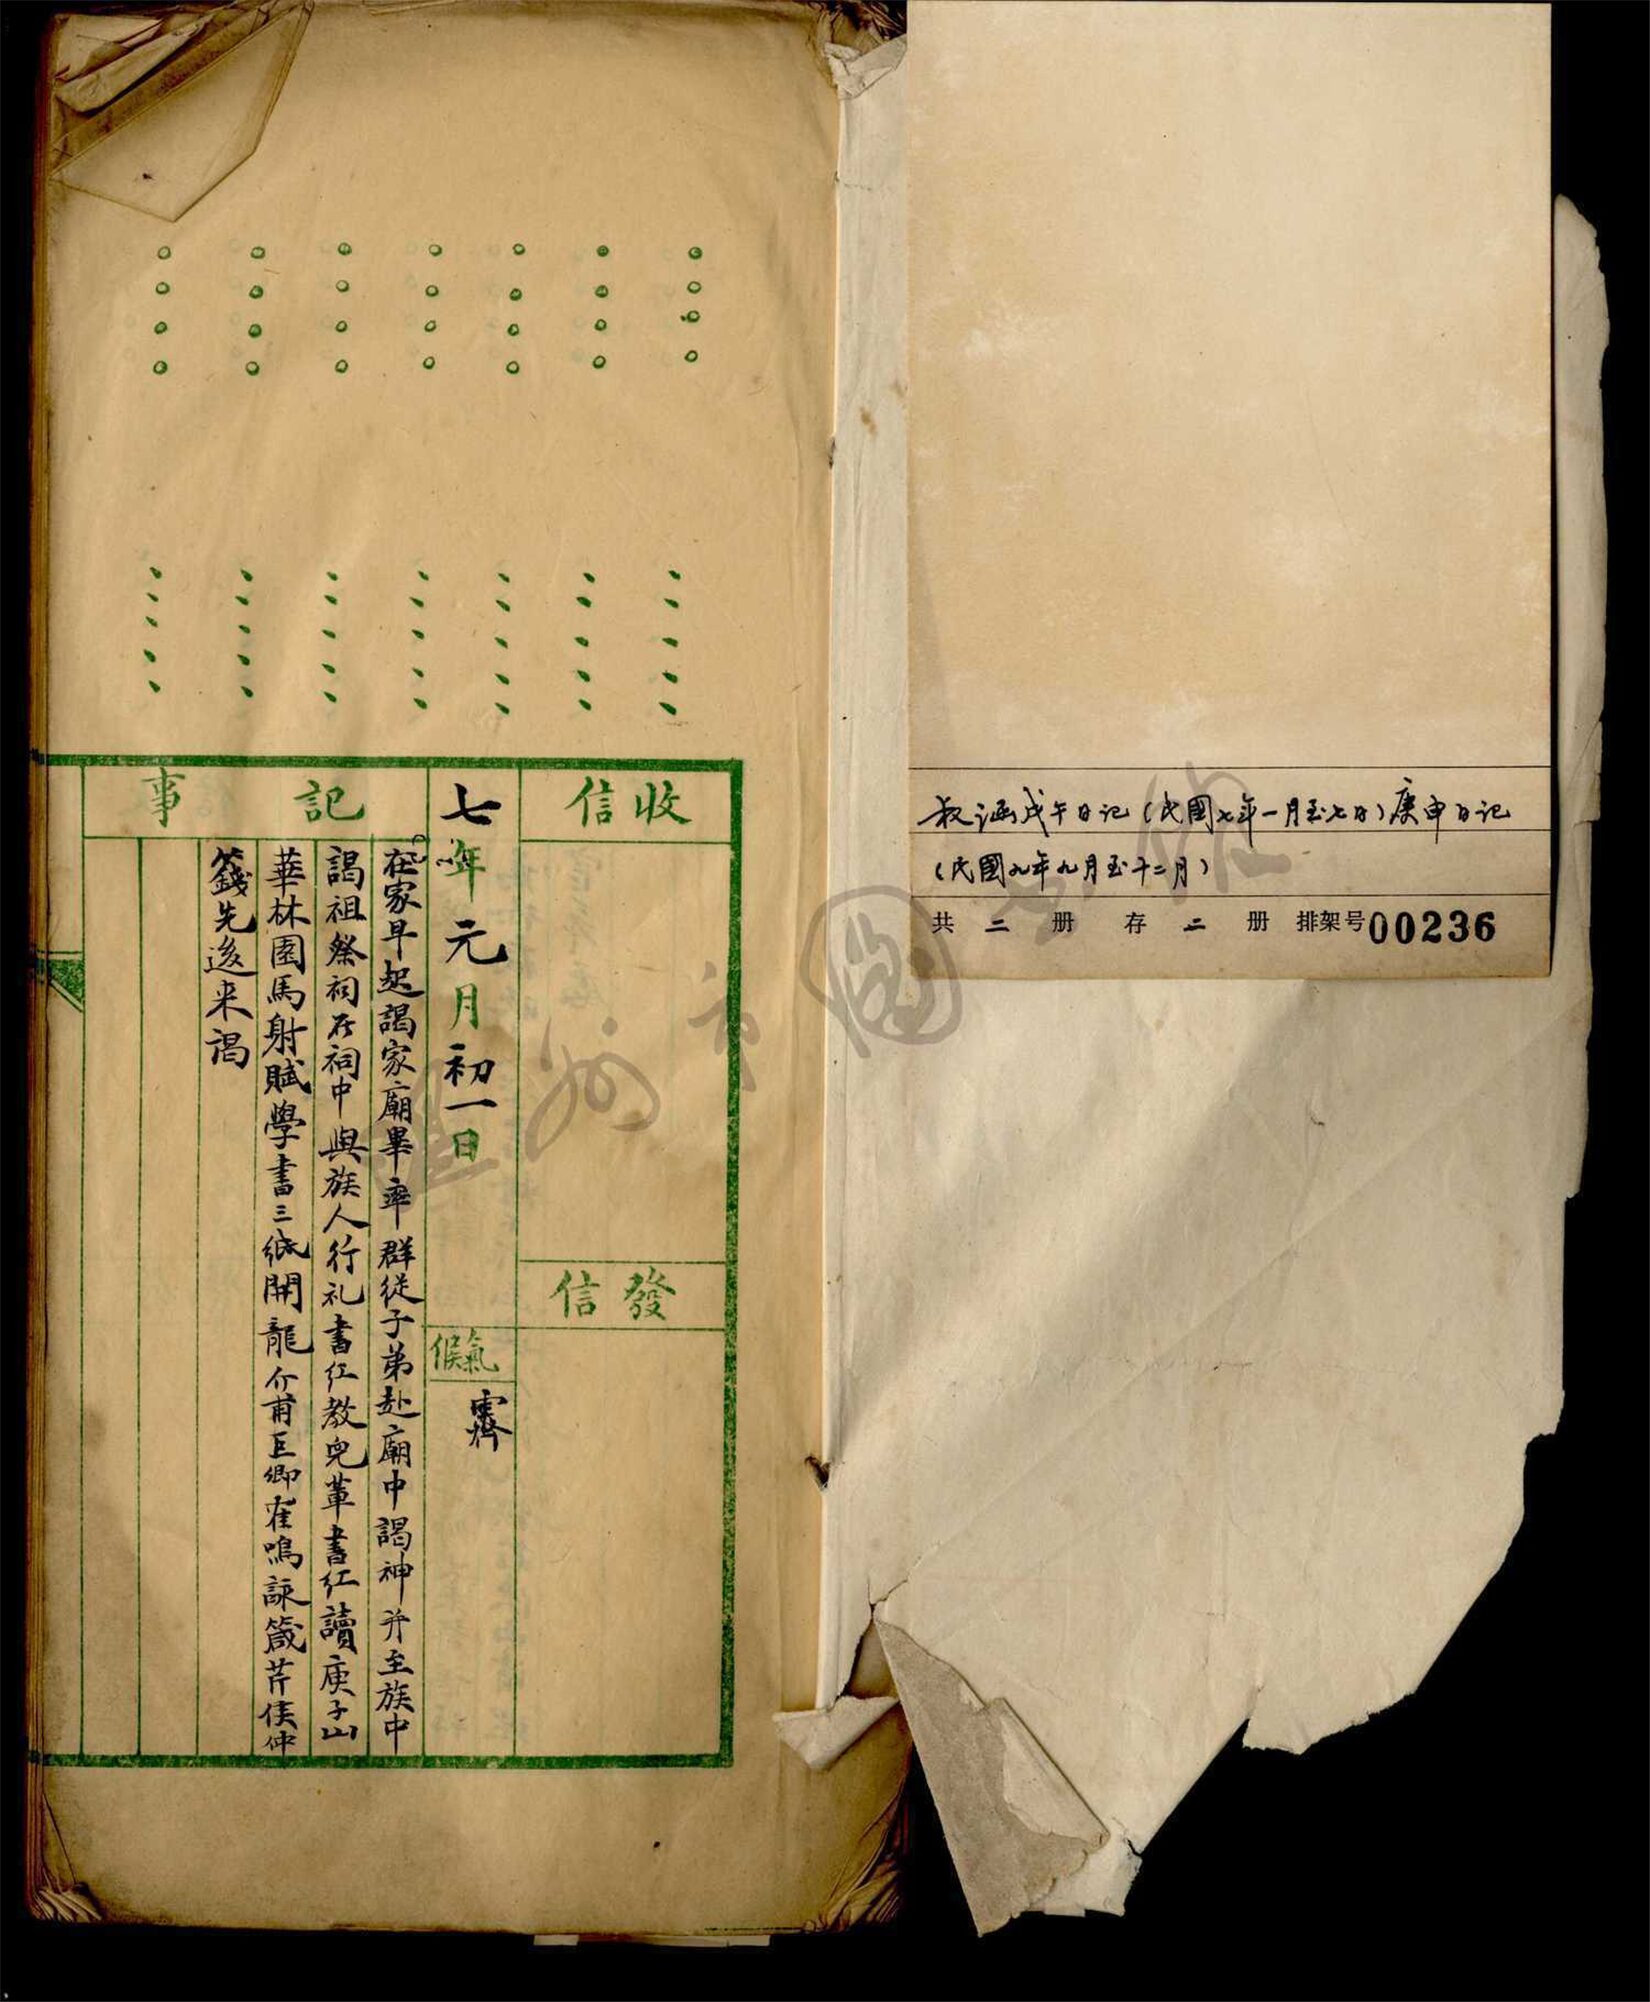 叔涵戊午日记（民國七年一月至七日）庚申日记
（民國九年九月至十二月）
共 二 册 存 二 册 排架号00236
收信
發信
七年元月初一日
氣候
霽
記事
在家早起謁家廟畢率群從子弟赴廟中謁神并至族中
謁祖祭祠在祠中與族人行礼書红教兒輩書红讀庾子山
華林園馬射賦學書三紙開龍介甫巨卿寉鳴詠箴芹侯仲
籛先後来謁